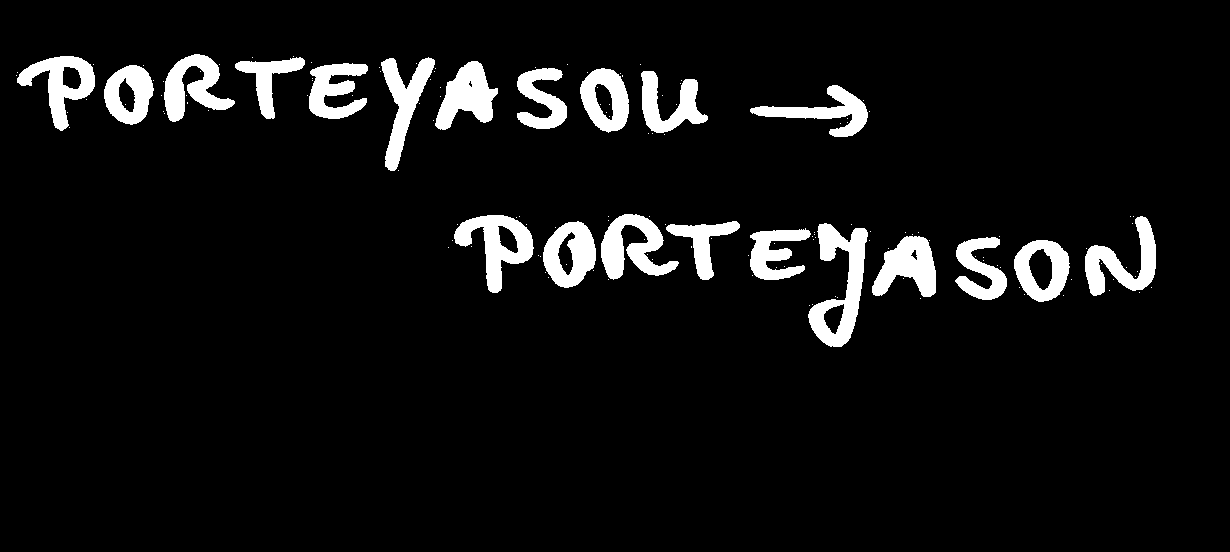 PORTEYASOU →
PORTEYASON